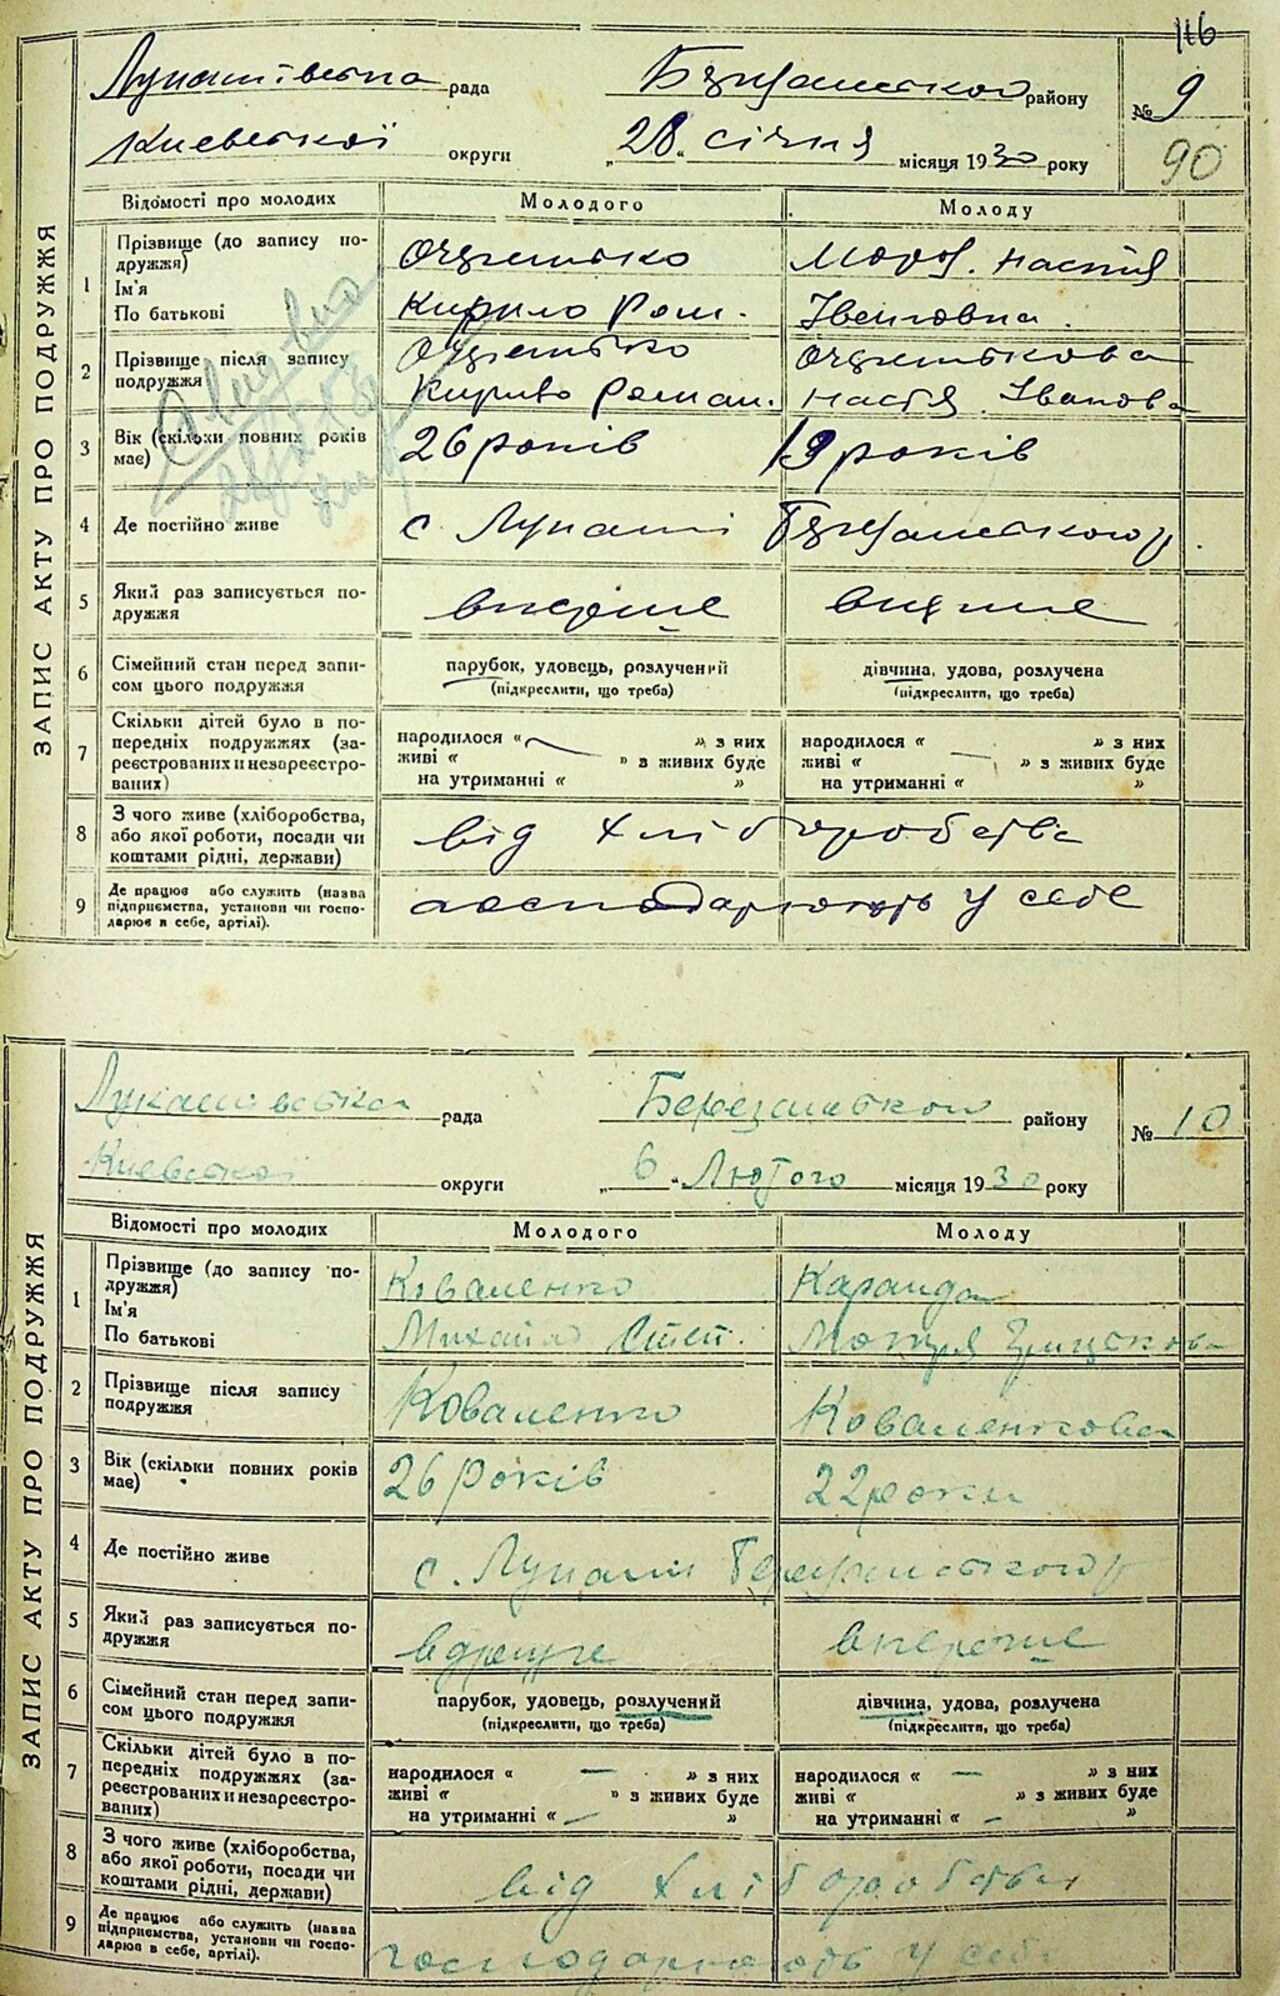 116
Лукашівська рада Березанськой району № 9
Киевської округи „28“ січня місяця 1930 року 90
ЗАПИС АКТУ ПРО ПОДРУЖЖЯ
Відомості про молодих Молодого Молоду
1 Прізвище (до запису по-
дружжя)
Ім'я
По батькові
Мороз. Настя
Кирило Ром. Івановна.
2 Прізвище після запису
подружжя
Кирило Роман. Настя Іванова
3 Вік (скільки повних років
має)
26 років 19 років
4 Де постійно живе с Лукаші Березанського р.
5 Який раз записується по-
дружжя
вперше вперше
6 Сімейний стан перед запи-
сом цього подружжя
парубок, удовець, розлучений дівчина, удова, розлучена
(підкреслити, що треба) (підкреслити, що треба)
7 Скільки дітей було в по-
передніх подружжях (за-
реєстрованих и незареєстро-
ваних)
народилося „ — ” з них народилося „ — ” з них
живі „ ” з живих буде живі „ ” з живих буде
на утриманні „ ” на утриманні „ ”
8 З чого живе (хліборобства,
або якої роботи, посади чи
коштами рідні, держави)
від хліборобства
9 Де працює або служить (назва
підприємства, установи чи госпо-
дарює в себе, артілі).
господарюють у себе
Лукашівська рада Березанськой району № 10
Киевської округи „6“ Лютого місяця 1930 року
ЗАПИС АКТУ ПРО ПОДРУЖЖЯ
Відомості про молодих Молодого Молоду
1 Прізвище (до запису по-
дружжя)
Ім'я
По батькові
Коваленко Каранда
Михайло Степ. Мотря Грицькова
2 Прізвище після запису
подружжя
Коваленко Коваленкова
3 Вік (скільки повних років
має)
26 років 22 роки
4 Де постійно живе с. Лукаші Березанського р
5 Який раз записується по-
дружжя
вдруге вперше
6 Сімейний стан перед запи-
сом цього подружжя
парубок, удовець, розлучений дівчина, удова, розлучена
(підкреслити, що треба) (підкреслити, що треба)
7 Скільки дітей було в по-
передніх подружжях (за-
реєстрованих и незареєстро-
ваних)
народилося „ — ” з них народилося „ — ” з них
живі „ ” з живих буде живі „ ” з живих буде
на утриманні „ — ” на утриманні „ — ”
8 З чого живе (хліборобства,
або якої роботи, посади чи
коштами рідні, держави)
від хліборобства
9 Де працює або служить (назва
підприємства, установи чи госпо-
дарює в себе, артілі).
господарюють у себе